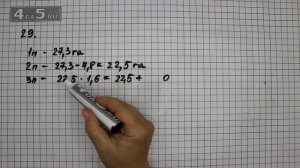 29.
1п - 27,3 га
2п - 27,3 - 4,8 = 22,5 га
3п - 22,5 · 1,6 = 22,5 + 0